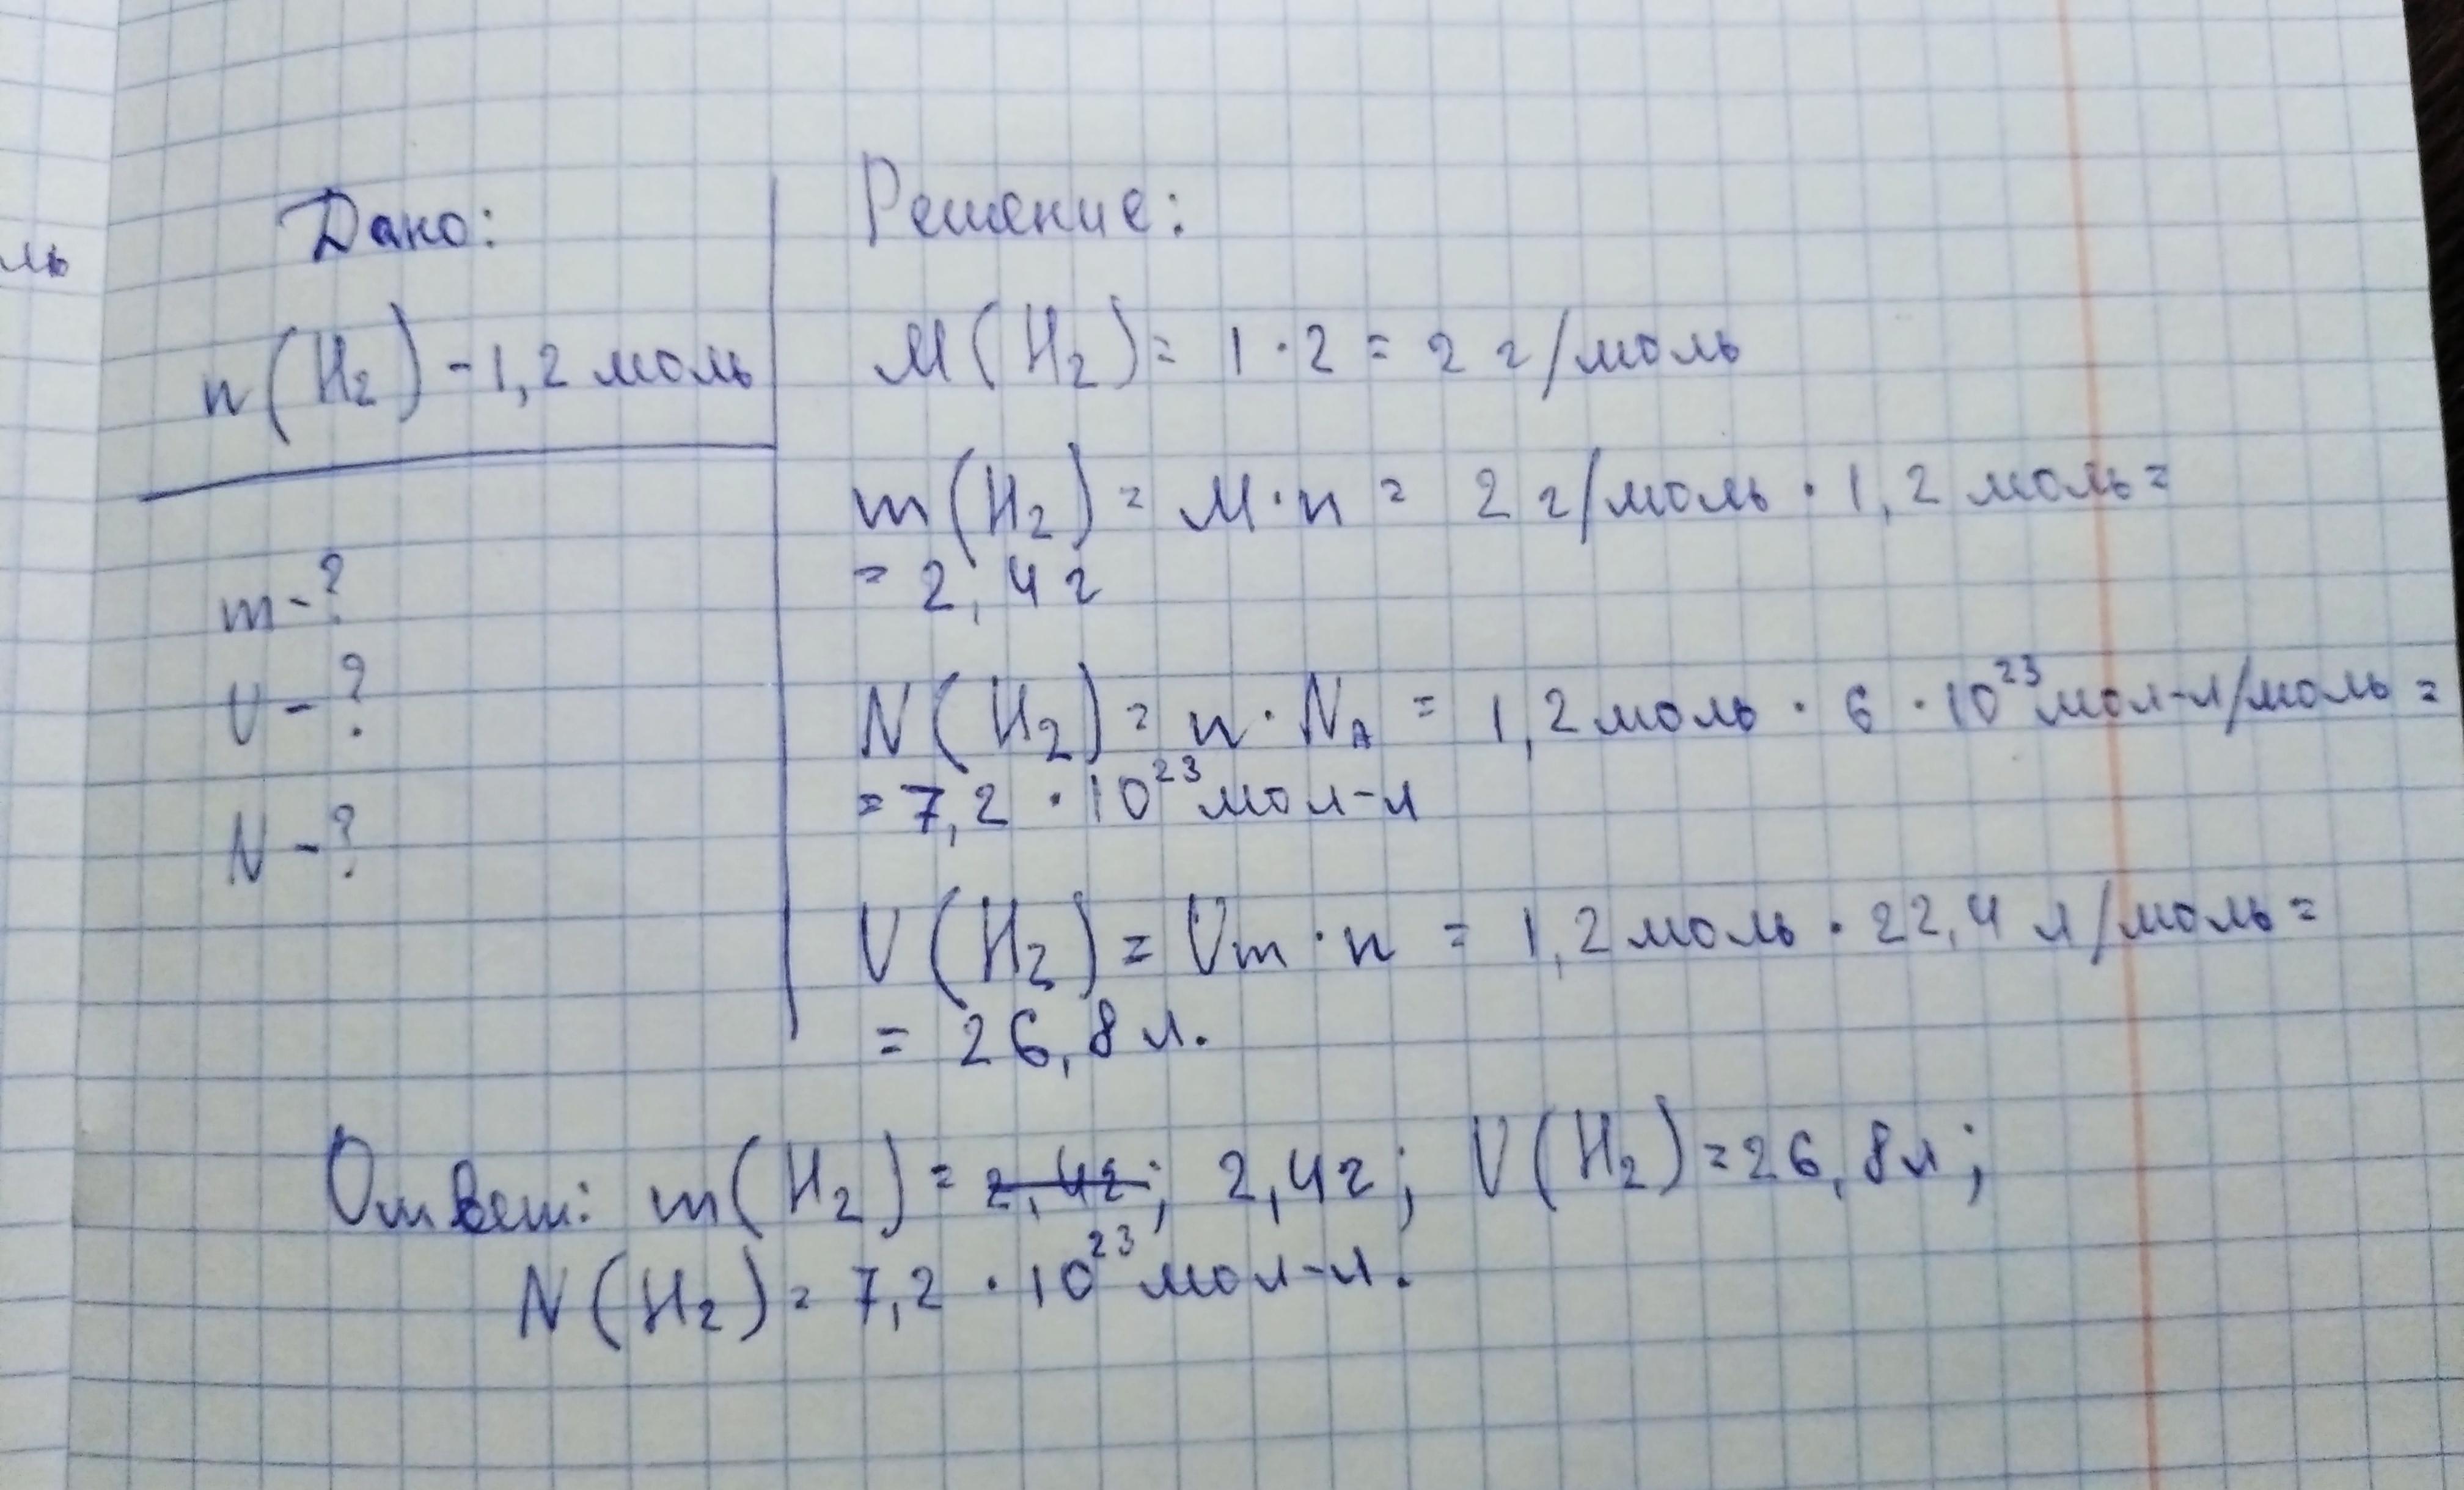 ль
Дано:
n(H₂) - 1,2 моль
m - ?
V - ?
N - ?
Решение:
M(H₂) = 1 · 2 = 2 г/моль
m(H₂) = M · n = 2 г/моль · 1,2 моль =
= 2,4 г
N(H₂) = n · Nₐ = 1,2 моль · 6 · 10²³ мол-л/моль =
= 7,2 · 10²³ мол-л
V(H₂) = Vm · n = 1,2 моль · 22,4 л/моль =
= 26,8 л.
Ответ: m(H₂) = 2,4г; 2,4г; V(H₂) = 26,8л;
N(H₂) = 7,2 · 10²³ мол-л.